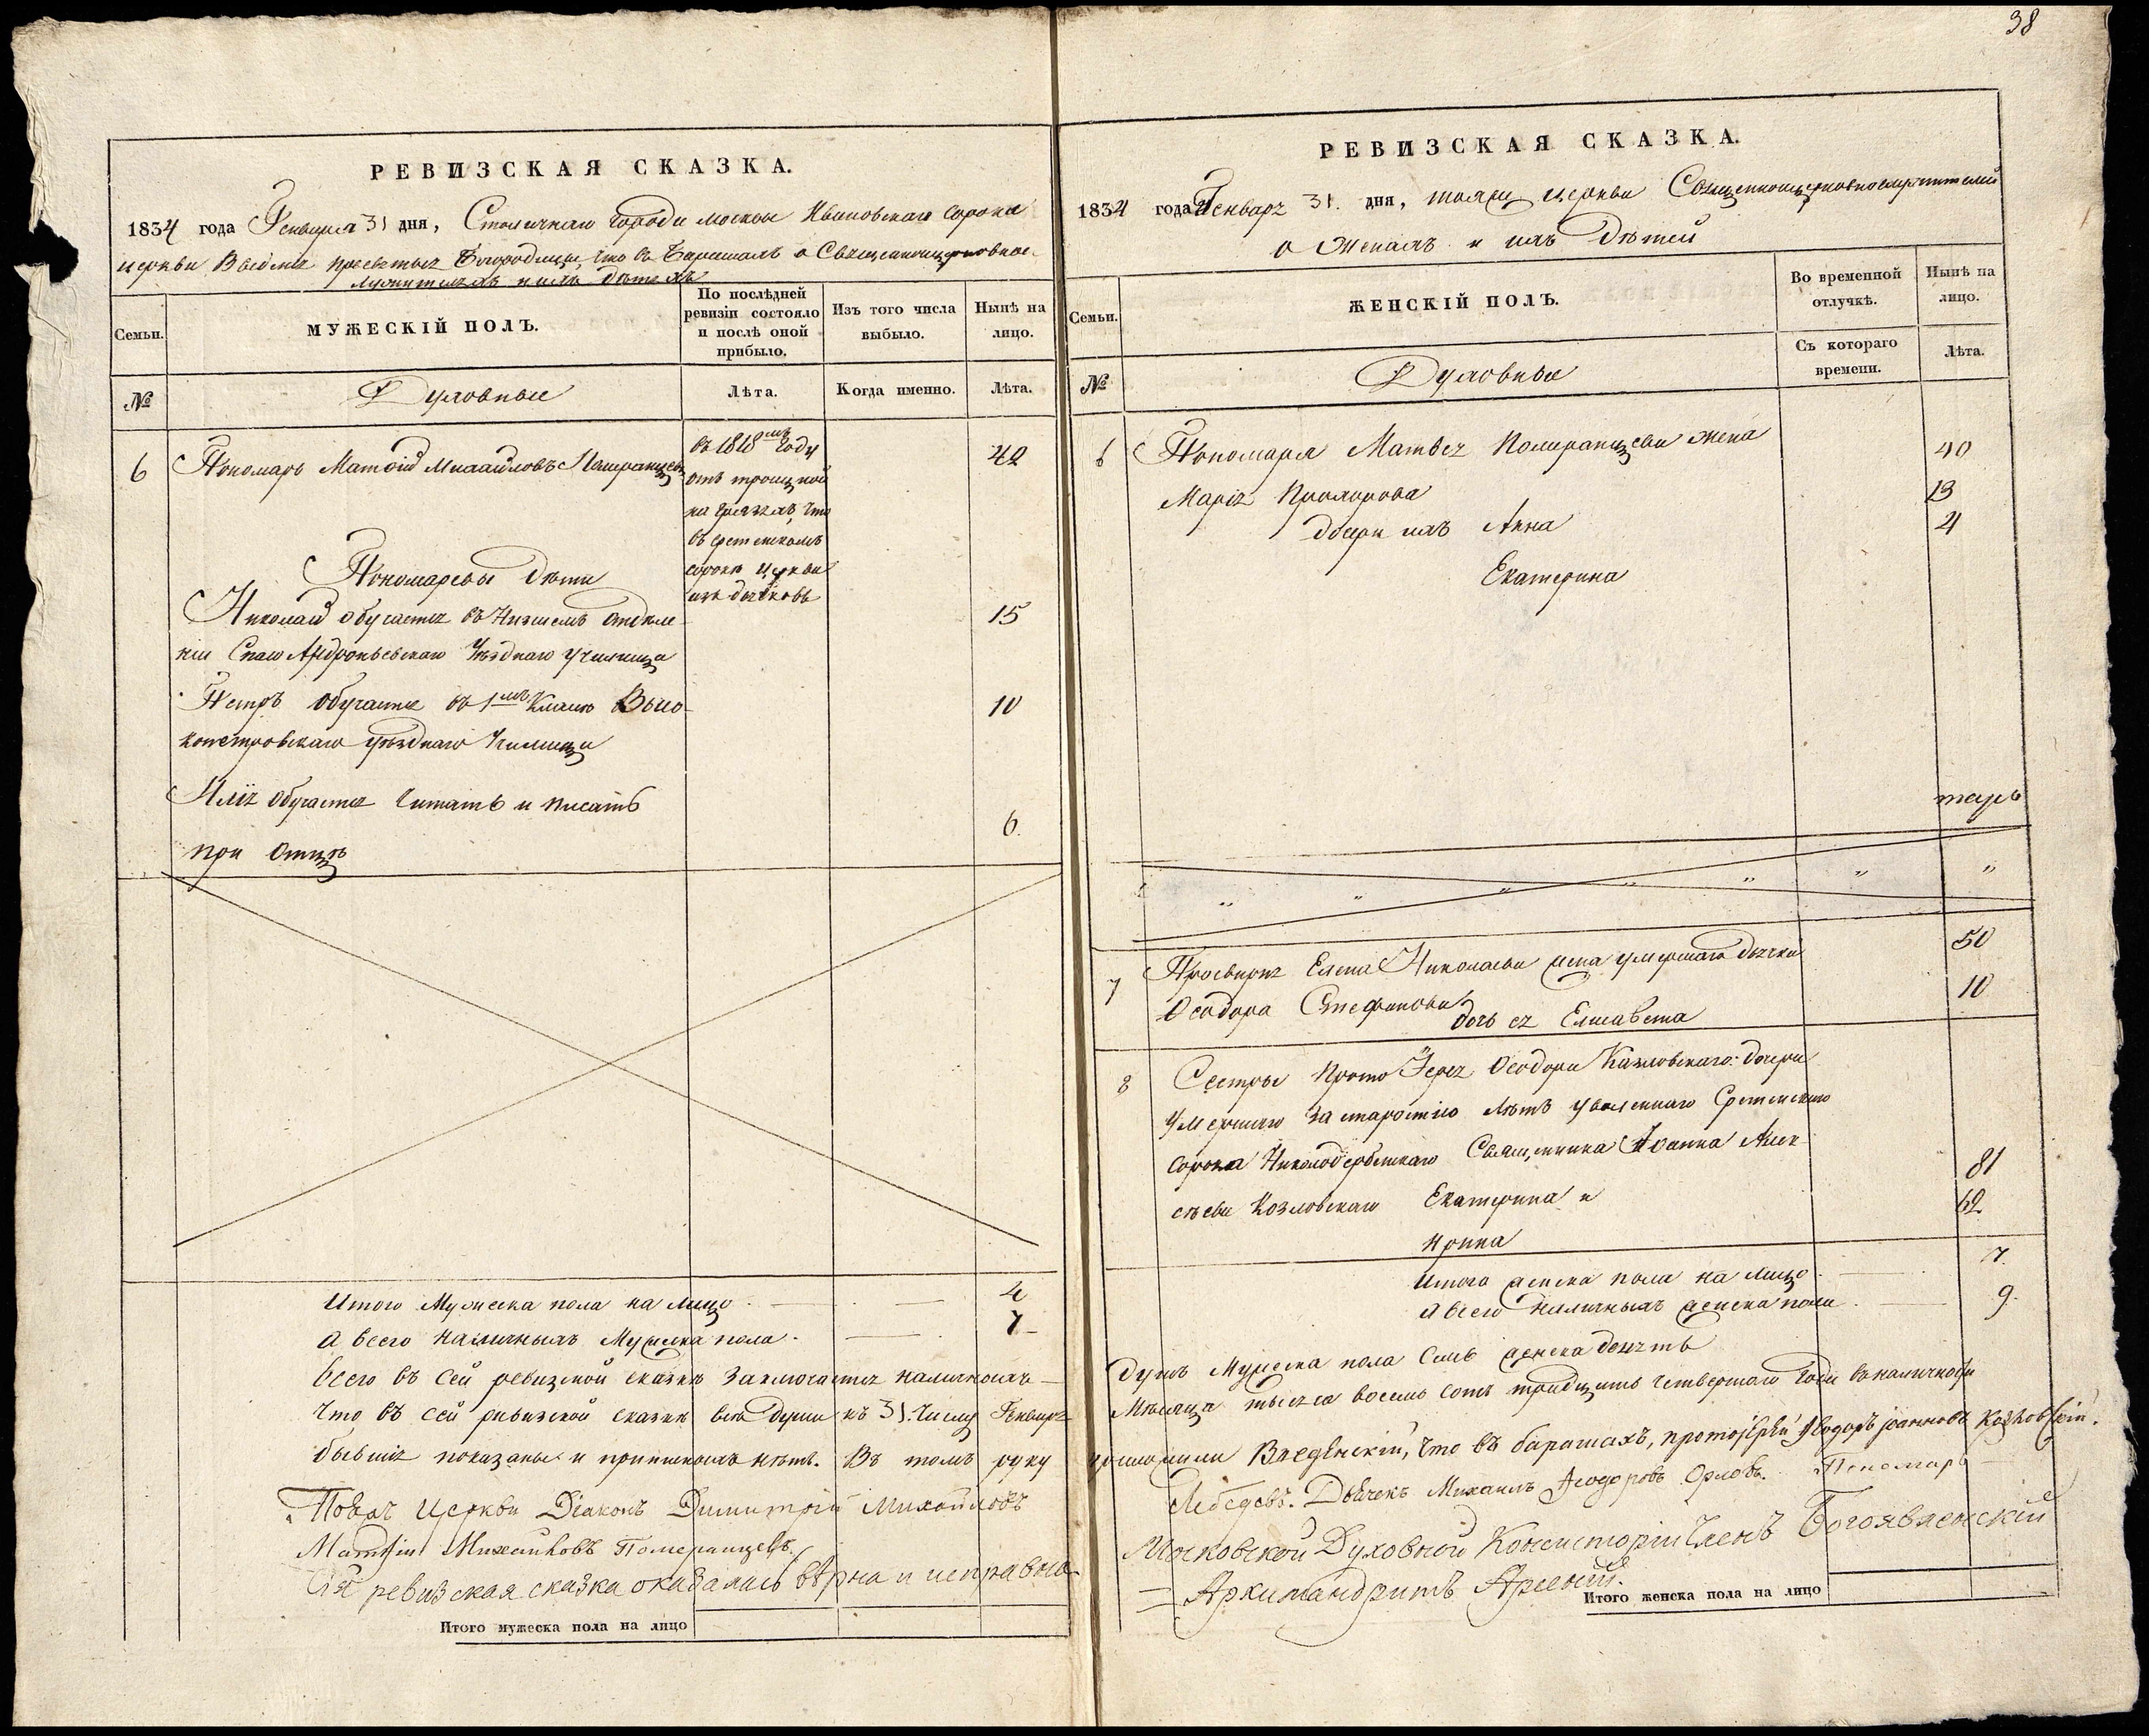 38
РЕВИЗСКАЯ СКАЗКА.
1834 года Генваря 31 дня, Столичнаго города москвы Ивановскаго сорока
церкви Введенія пресвятыя Богородицы, что въ Барашахъ о Священноцерковно-
служителяхъ и ихъ дѣтяхъ
Семьи.
МУЖЕСКІЙ ПОЛЪ.
По послѣдней ревизіи состояло и послѣ оной прибыло.
Изъ того числа выбыло.
Нынѣ на лицо.
№
Духовные
Лѣта.
Когда именно.
Лѣта.
6 Пономарь Матѳій Михайловъ Померанцевъ
въ 1818мъ году
отъ троицкой
на грязяхъ, что
въ сретенскомъ
сорокѣ церкви
изъ дьячковъ
42
Пономаревы дѣти
Николай обучается въ Низшемъ отдѣле-
ніи Спасо Андроньевскаго Уѣзднаго училища
15
Петръ обучается въ 1мъ Классѣ Высо-
копетровскаго уѣзднаго Училища
10
Илія обучается читать и писать
при Отцѣ
6.
Итого Мужеска пола на лицо
4
а всего наличныхъ Мужеска пола.
7
Всего въ сей ревизской сказкѣ заключается наличныхъ
Что въ сей ревизской сказкѣ всѣ души къ 31. числу Генваря
бывшіе показаны и приписныхъ нѣтъ. Въ томъ руку
Тояже Церкви Діаконъ Димитрій Михайловъ
Матѳій Михайловъ Померанцевъ.
Сія ревизская сказка оказалась вѣрна и исправна
Итого мужеска пола на лицо
РЕВИЗСКАЯ СКАЗКА.
1834 года Генваря 31. дня, тояже церкви Священноцерковнослужителей
о Женахъ и ихъ дѣтей
Семьи.
ЖЕНСКІЙ ПОЛЪ.
Во временной отлучкѣ.
Нынѣ на лицо.
№
Духовные
Съ котораго времени.
Лѣта.
6 Пономаря Матвея Померанцева жена
40
Марія Прохорова
13
дочери ихъ Анна
4
Екатерина
7 Просвирня Елена Николаева жена умершаго дьячка
50
Ѳеодора Стефанова
10
дочь ея Елисавета
8 Сестры Прото Іерея Ѳеодора Казловскаго: дочери
умершаго за старостію лѣтъ уволеннаго Сретенскаго
сорока Николодербенскаго Священника Іоанна Алек-
сѣева Козловскаго Екатерина и
81
62
Ирина
Итого женска пола на лицо.
7.
а всего наличныхъ женска пола.
9.
душъ Мужеска пола семь женска девять
Мѣсяца тысяча восемь сотъ тридцать четвертаго года въ наличности
приложили Введенскій, что въ барашахъ, протоіерей Ѳеодоръ Іоанновъ Козловскій.
Лебедевъ. Дьячекъ Михаилъ Ѳеодоровъ Орловъ. Пономарь
Московской Духовной Консисторіи Членъ Богоявленскій
Архимандритъ
Итого женска пола на лицо